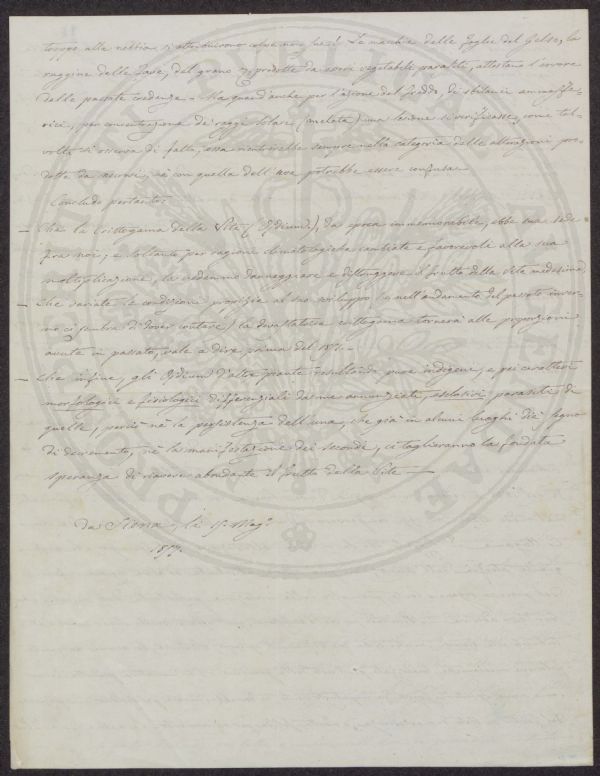 troppo alla nebbia si attribuirono colpe non sue! Le macchie delle foglie del Gelso, la
ruggine delle fave, del grano &, prodotte da esseri vegetabili parassiti, attestano l'errore
delle passate credenze. Ma quand'anche per l'azione del freddo, di sbilanci ammosfe-
rici, per concentrazione di raggi solari (melata) una lesione si verificasse, come tal-
volta si osserva di fatto, essa rientrerebbe sempre nella categoria delle alterazioni pro-
dotte da, nè con quella dell'uva potrebbe essere confusa.
Concludo pertanto:
— Che la Crittogama della Vite (Oydium?), da epoca immemorabile, ebbe sua sede
fra noi; e soltanto per ragioni climatologiche cambiate e favorevoli alla sua
moltiplicazione, la vedemmo danneggiare e distruggere il frutto della vite medesima;
— Che variate le condizioni propizie al suo sviluppo (e nell'andamento del passato inver-
no ci sembra di dover contare) la devastatrice crittogama tornerà alle proporzioni
avute in passato, vale a dire prima del 185
— Che infine, gli Oydium d'altre piante resultando pure indigeni, e pei caratteri
morfologici e fisiologici differenziali da me annunziati, esclusivi parassiti di
quelle, perciò nè la persistenza dell'uno, che già in alcuni luoghi diè segno
di decremento, nè la manifestazione dei secondi, ci toglieranno la fondata
speranza di riavere abondante il frutto della Vite —
Da Siena, li Magº
185